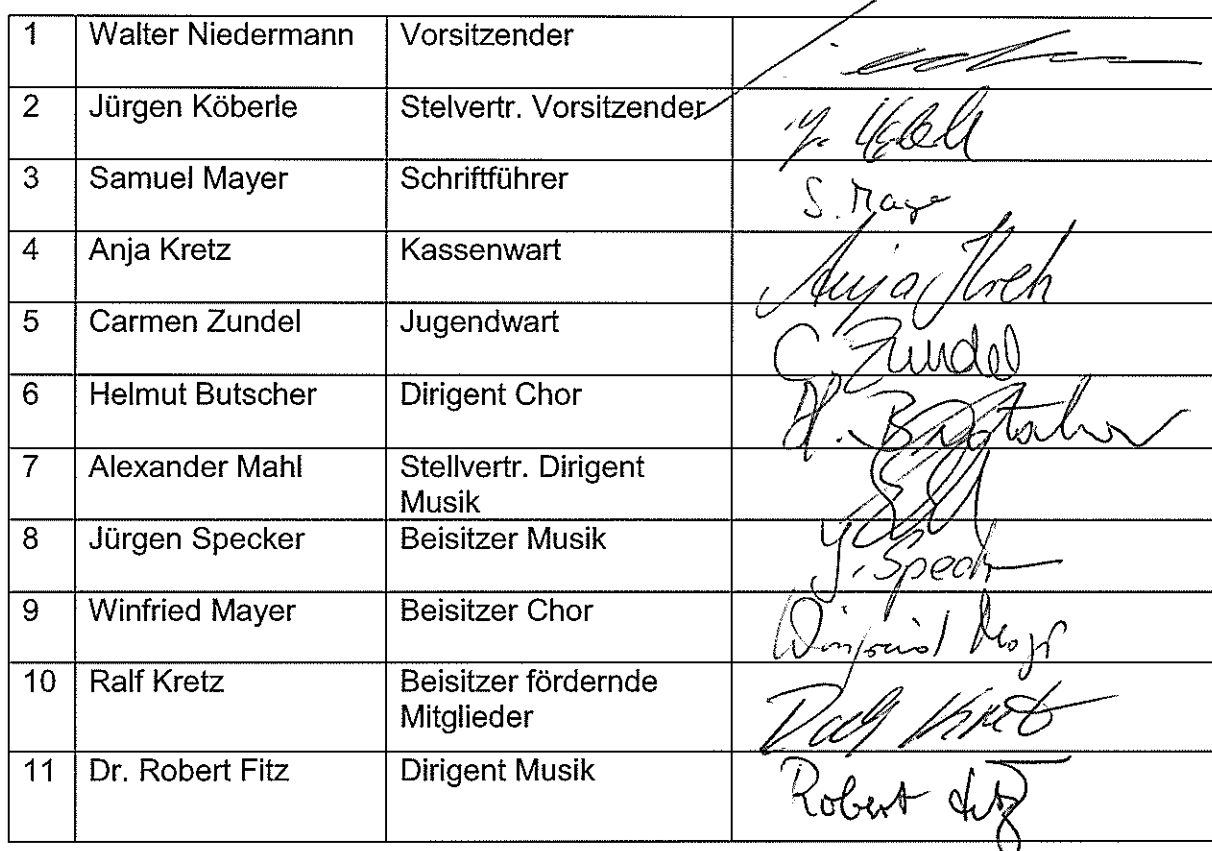 1 Walter Niedermann Vorsitzender
2 Jürgen Köberle Stelvertr. Vorsitzender
3 Samuel Mayer Schriftführer S. Maye
4 Anja Kretz Kassenwart Anja Kretz
5 Carmen Zundel Jugendwart C. Zundel
6 Helmut Butscher Dirigent Chor H. Butscher
7 Alexander Mahl Stellvertr. Dirigent
Musik
8 Jürgen Specker Beisitzer Musik J. Speck
9 Winfried Mayer Beisitzer Chor Winfried
10 Ralf Kretz Beisitzer fördernde
Mitglieder Ralf Kretz
11 Dr. Robert Fitz Dirigent Musik Robert Fitz